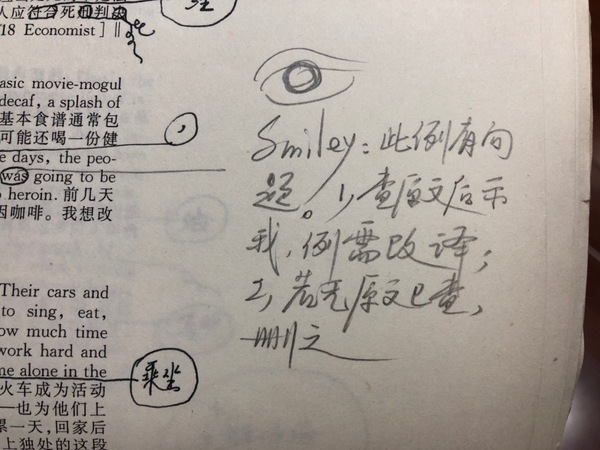 人应符合死刑判决
/18 Economist]‖
asic movie-mogul
decaf, a splash of
基本食谱通常包
可能还喝一份健
e days, the peo-
was going to be
o heroin. 前几天
因咖啡。我想改
Their cars and
to sing, eat,
ow much time
work hard and
me alone in the
火车成为活动
—也为他们上
累一天,回家后
上独处的这段
,
乘坐
Smiley: 此例有问
题。1, 查原文后示
我, 例需改译;
2, 若无原文可查,
删之